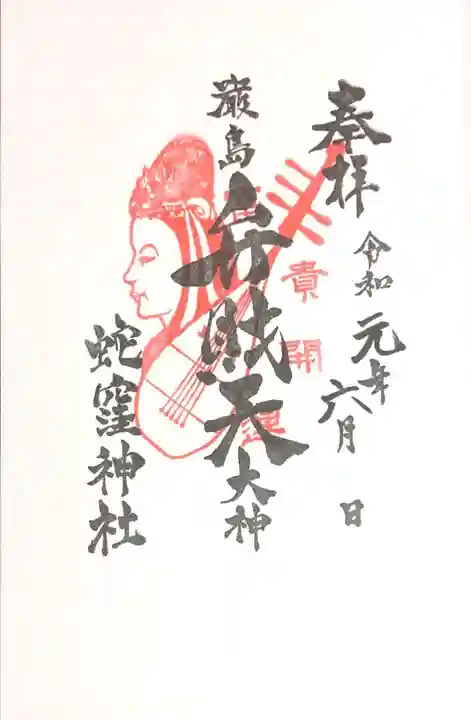 奉拝
令和元年六月 日
厳島
弁財天
大神
蛇窪神社
貴
開
運